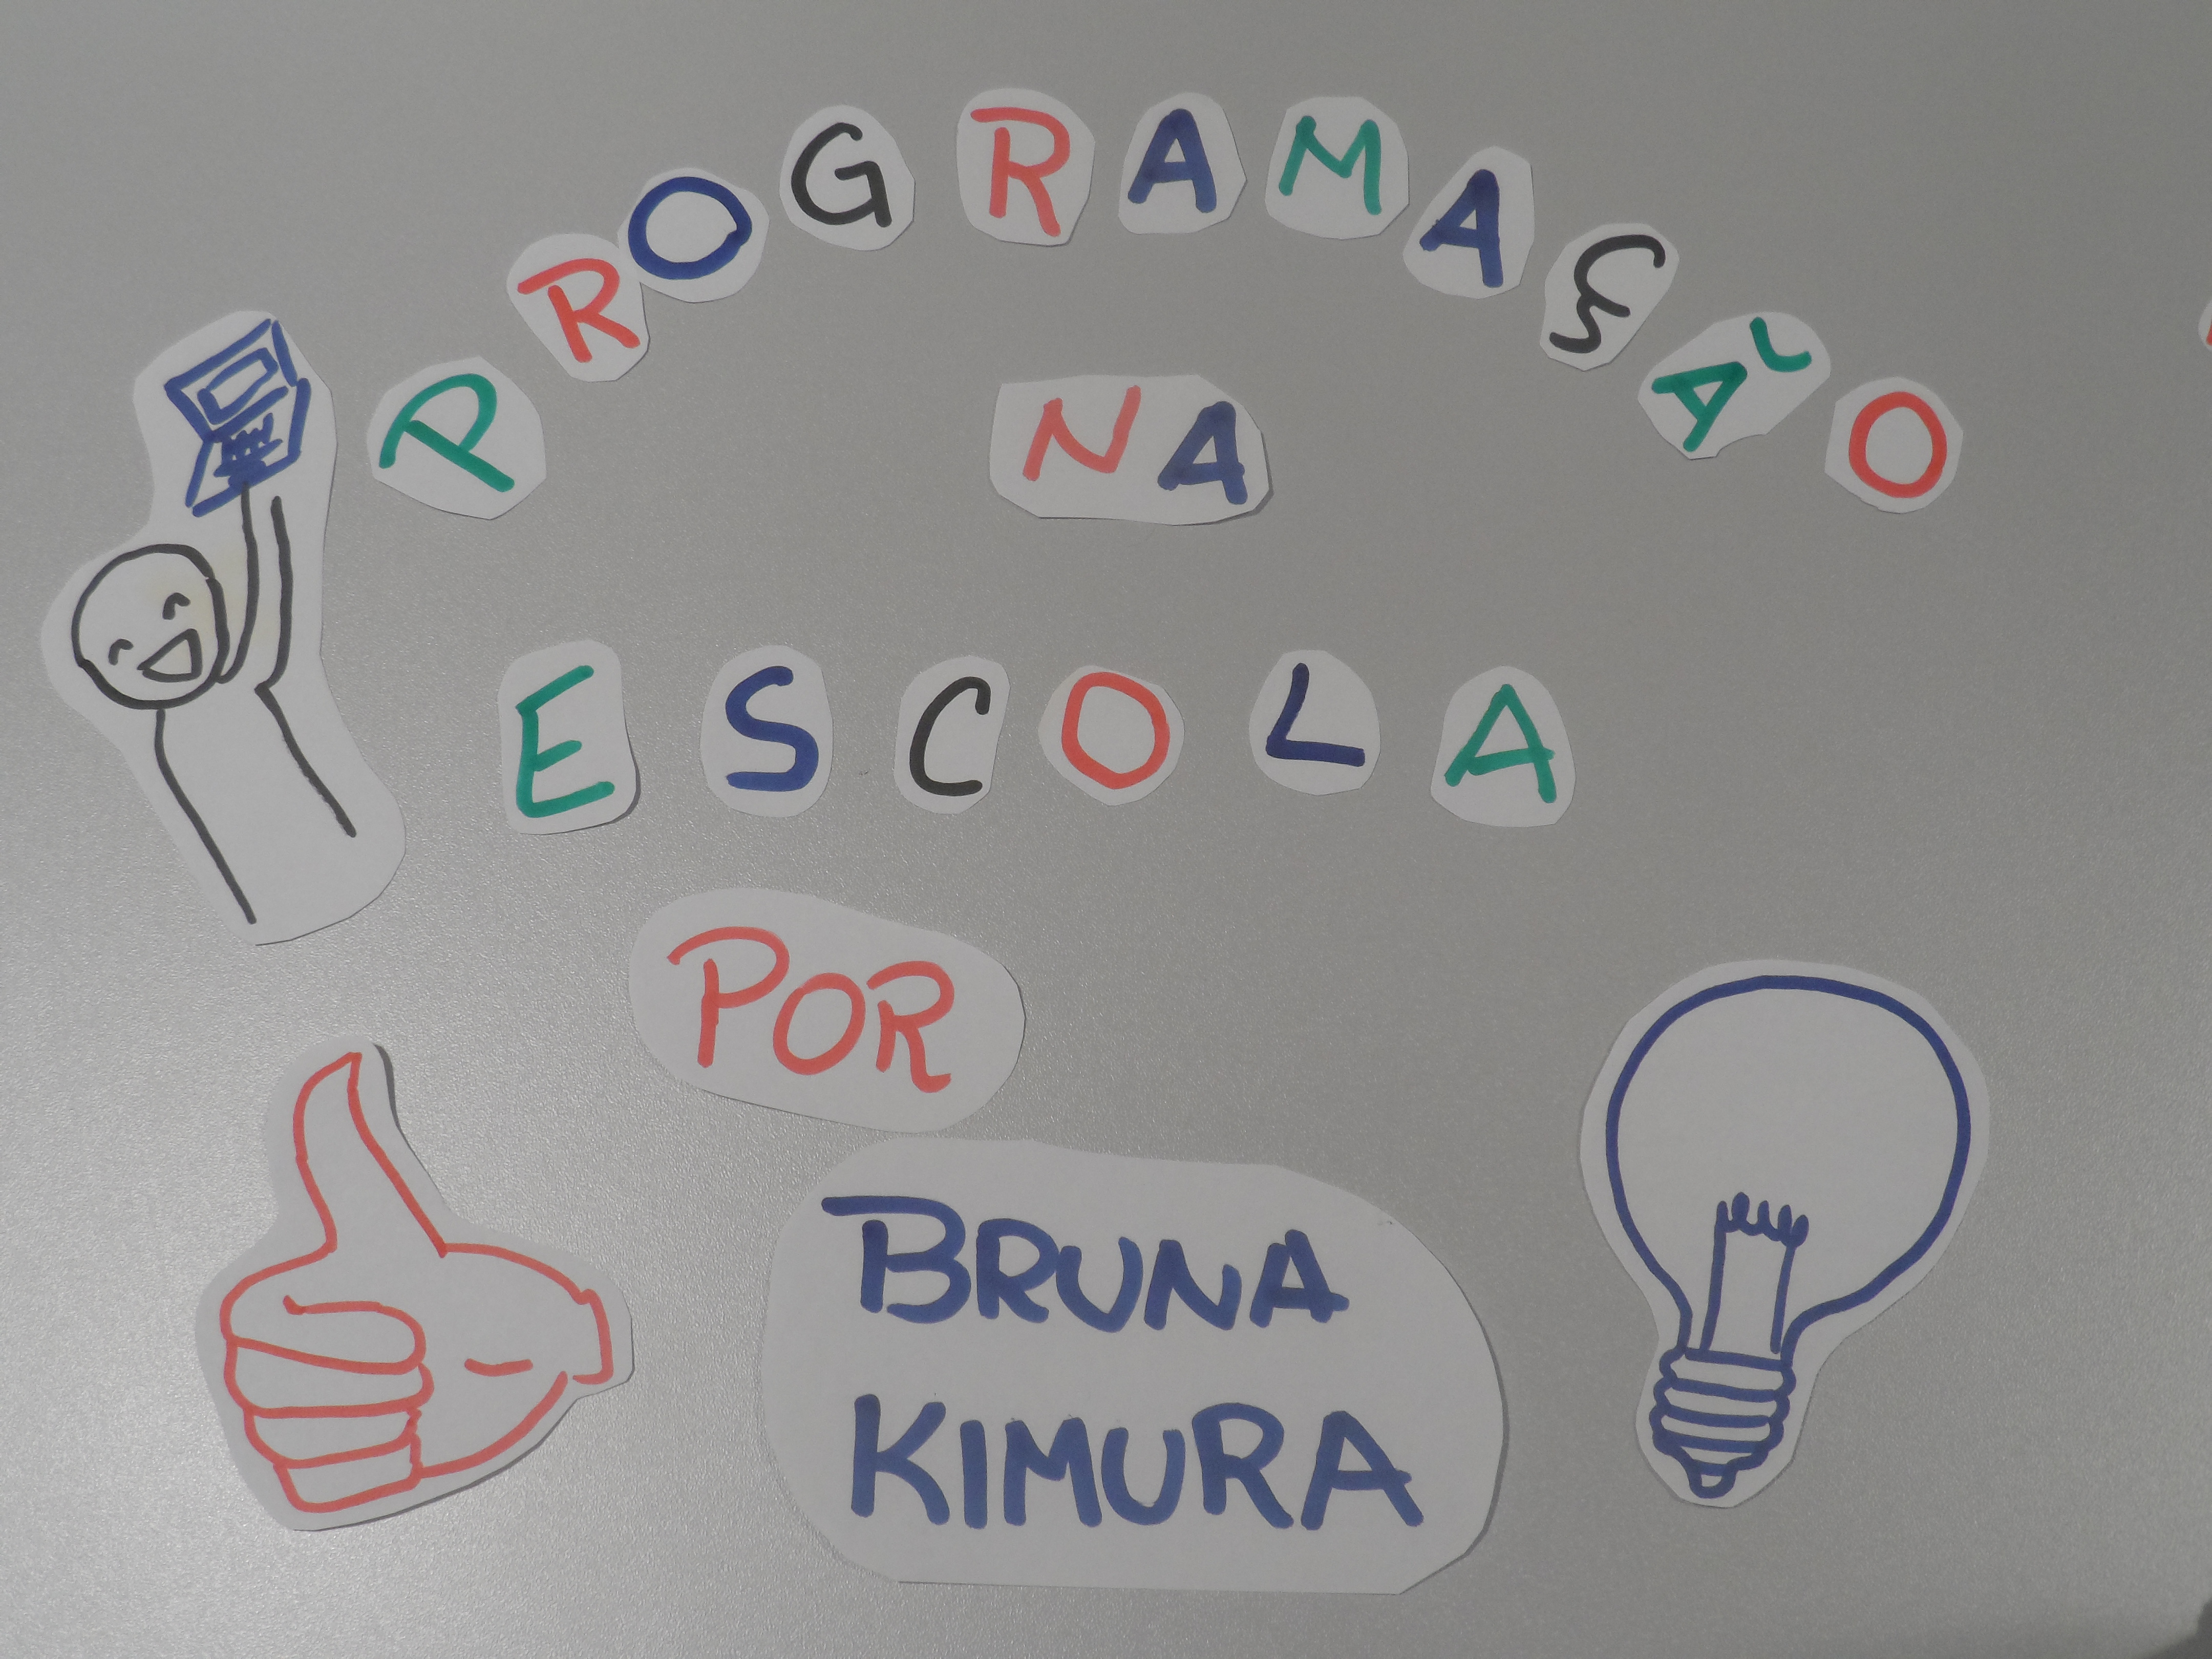 PROGRAMAÇÃO
NA
ESCOLA
POR
BRUNA
KIMURA